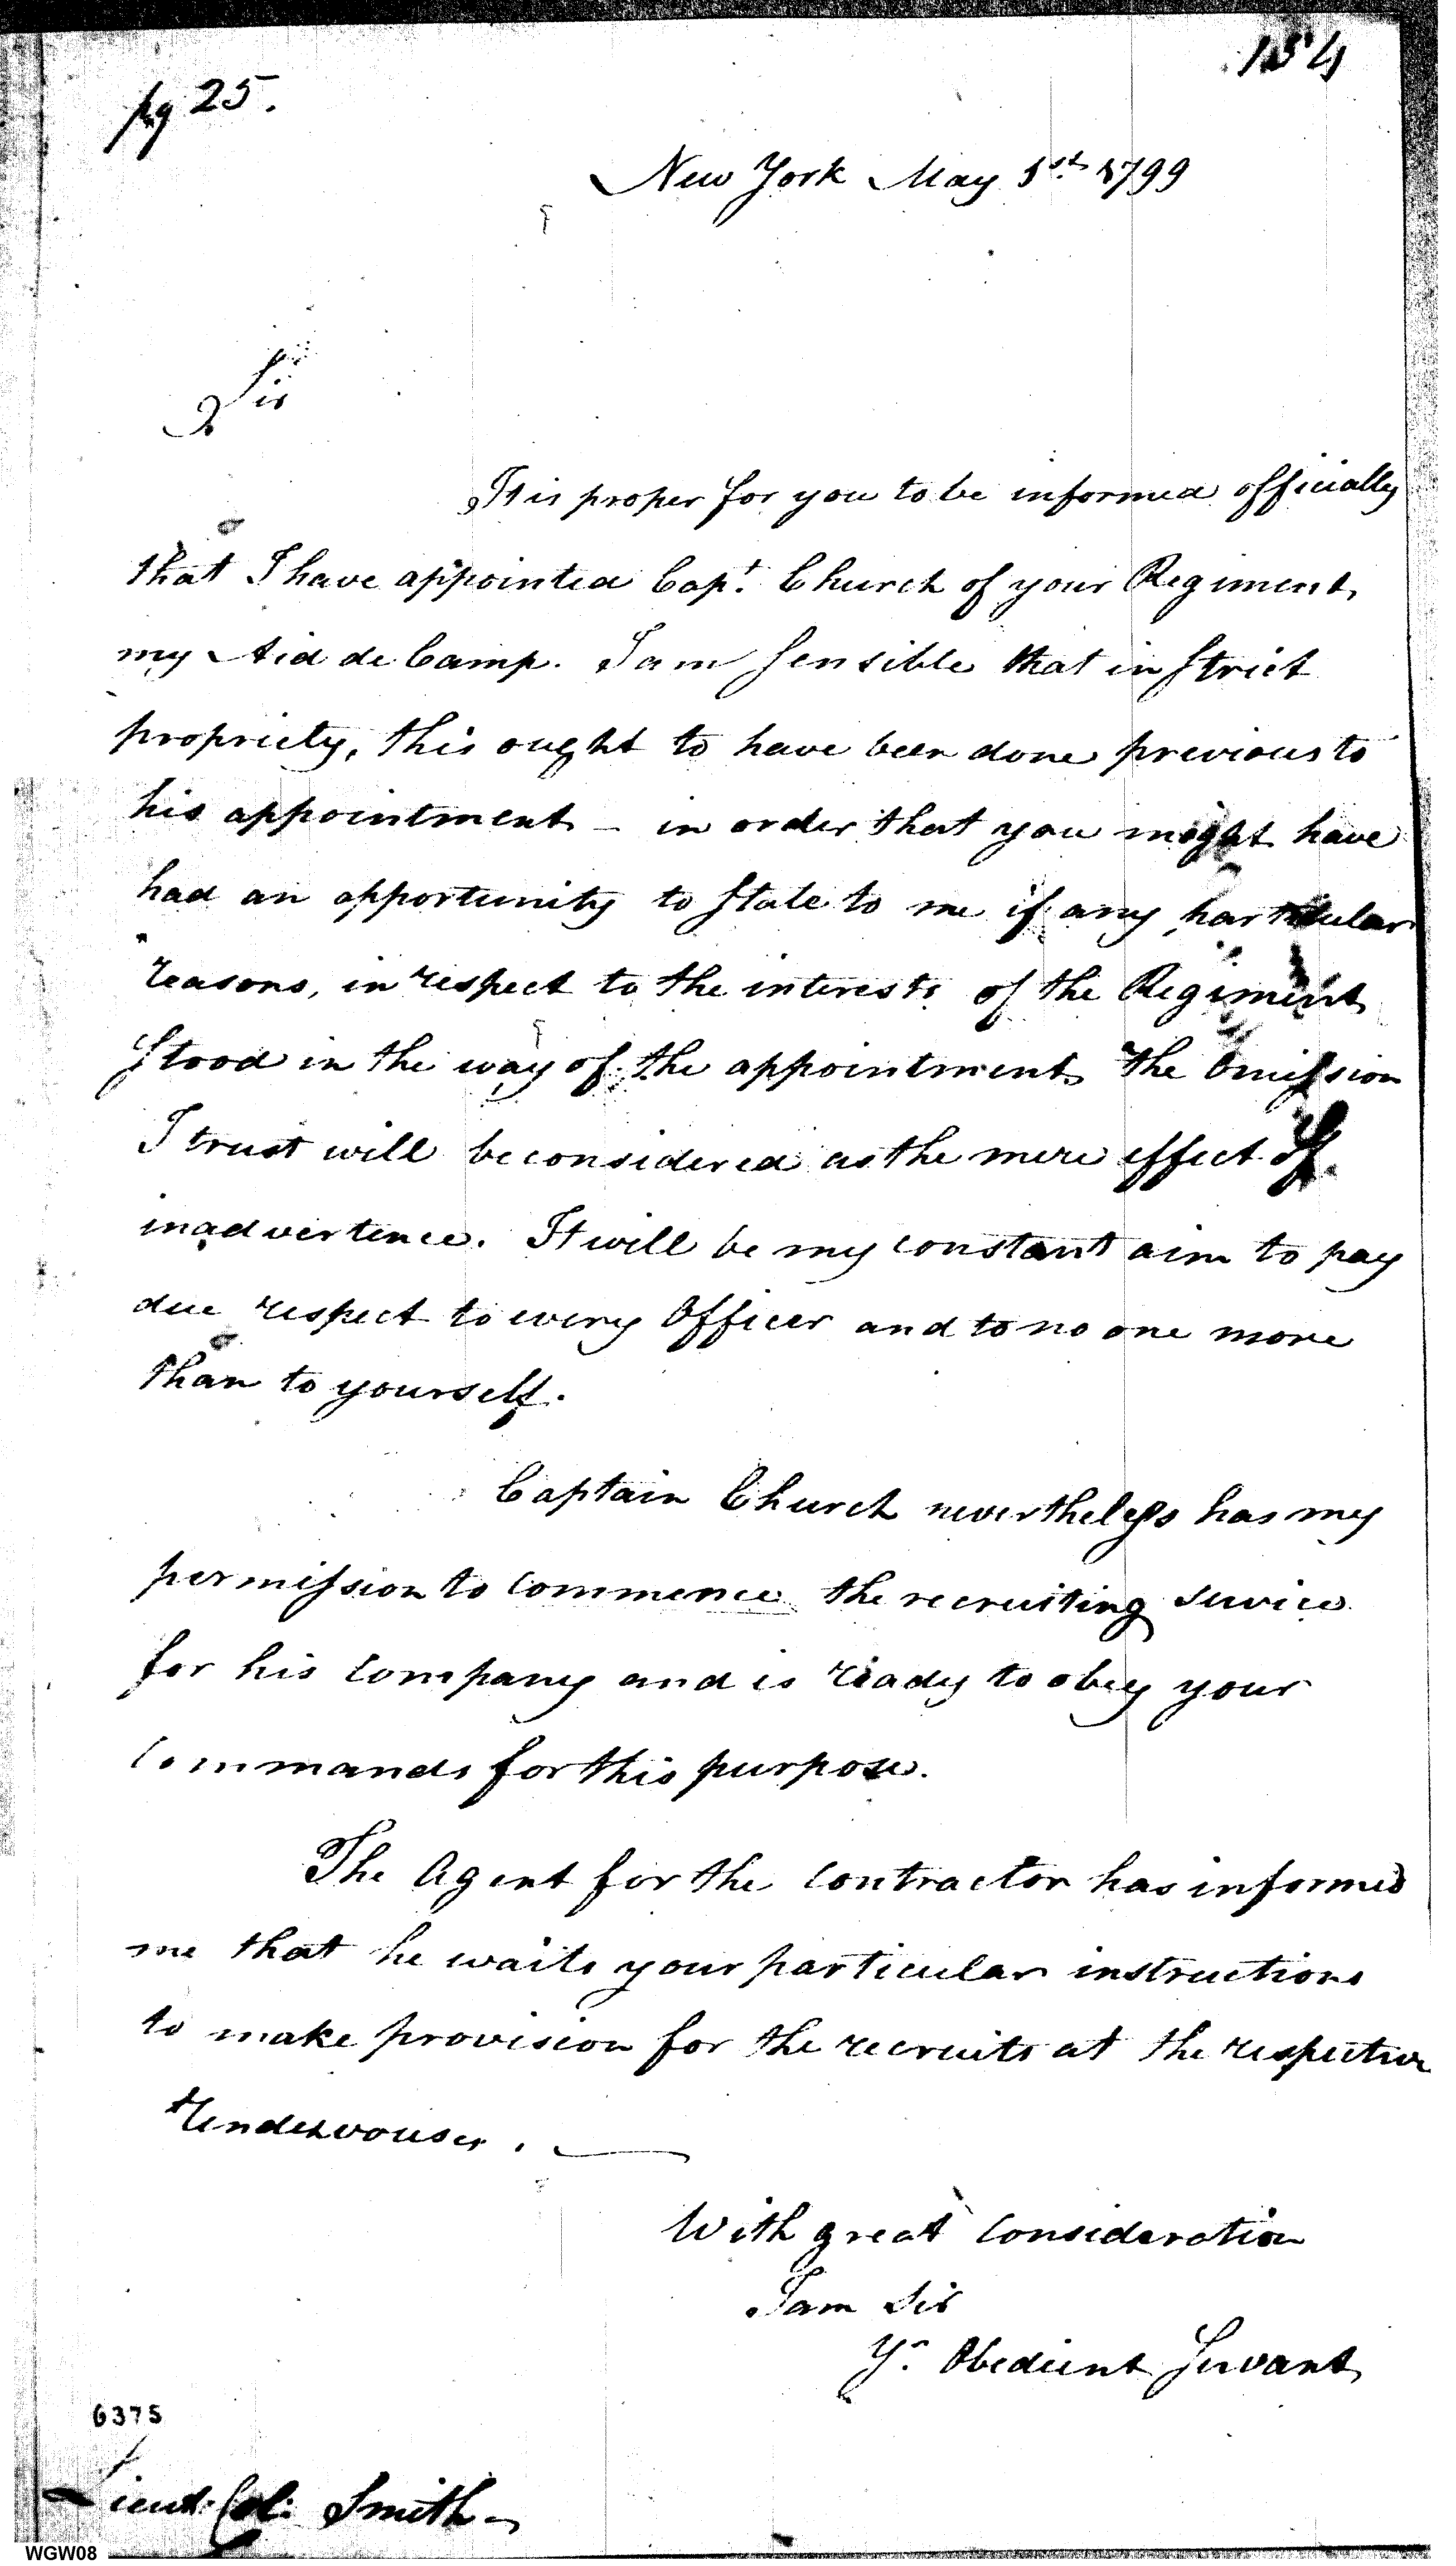 154
pg 25.
New York May 1st 1799
Sir
It is proper for you to be informed officially
that I have appointed Capt. Church of your Regiment
my Aid de Camp. I am sensible that in strict
propriety, this ought to have been done previous to
his appointment – in order that you might have
had an opportunity to state to me if any particular
reasons, in respect to the interests of the Regiment
stood in the way of the appointment The Omission
I trust will be considered as the mere effect of
inadvertence. It will be my constant aim to pay
due respect to every Officer and to no one more
than to yourself.
Captain Church nevertheless has my
permission to commence the recruiting service
for his company and is ready to obey your
commands for this purpose.
The Agent for the contractor has informed
me that he waits your particular instructions
to make provision for the recruits at the respective
rendezvouses. —
With great consideration
I am Sir
Yr. Obedient Servant
6375
Lieut: Col: Smith –
WGW08